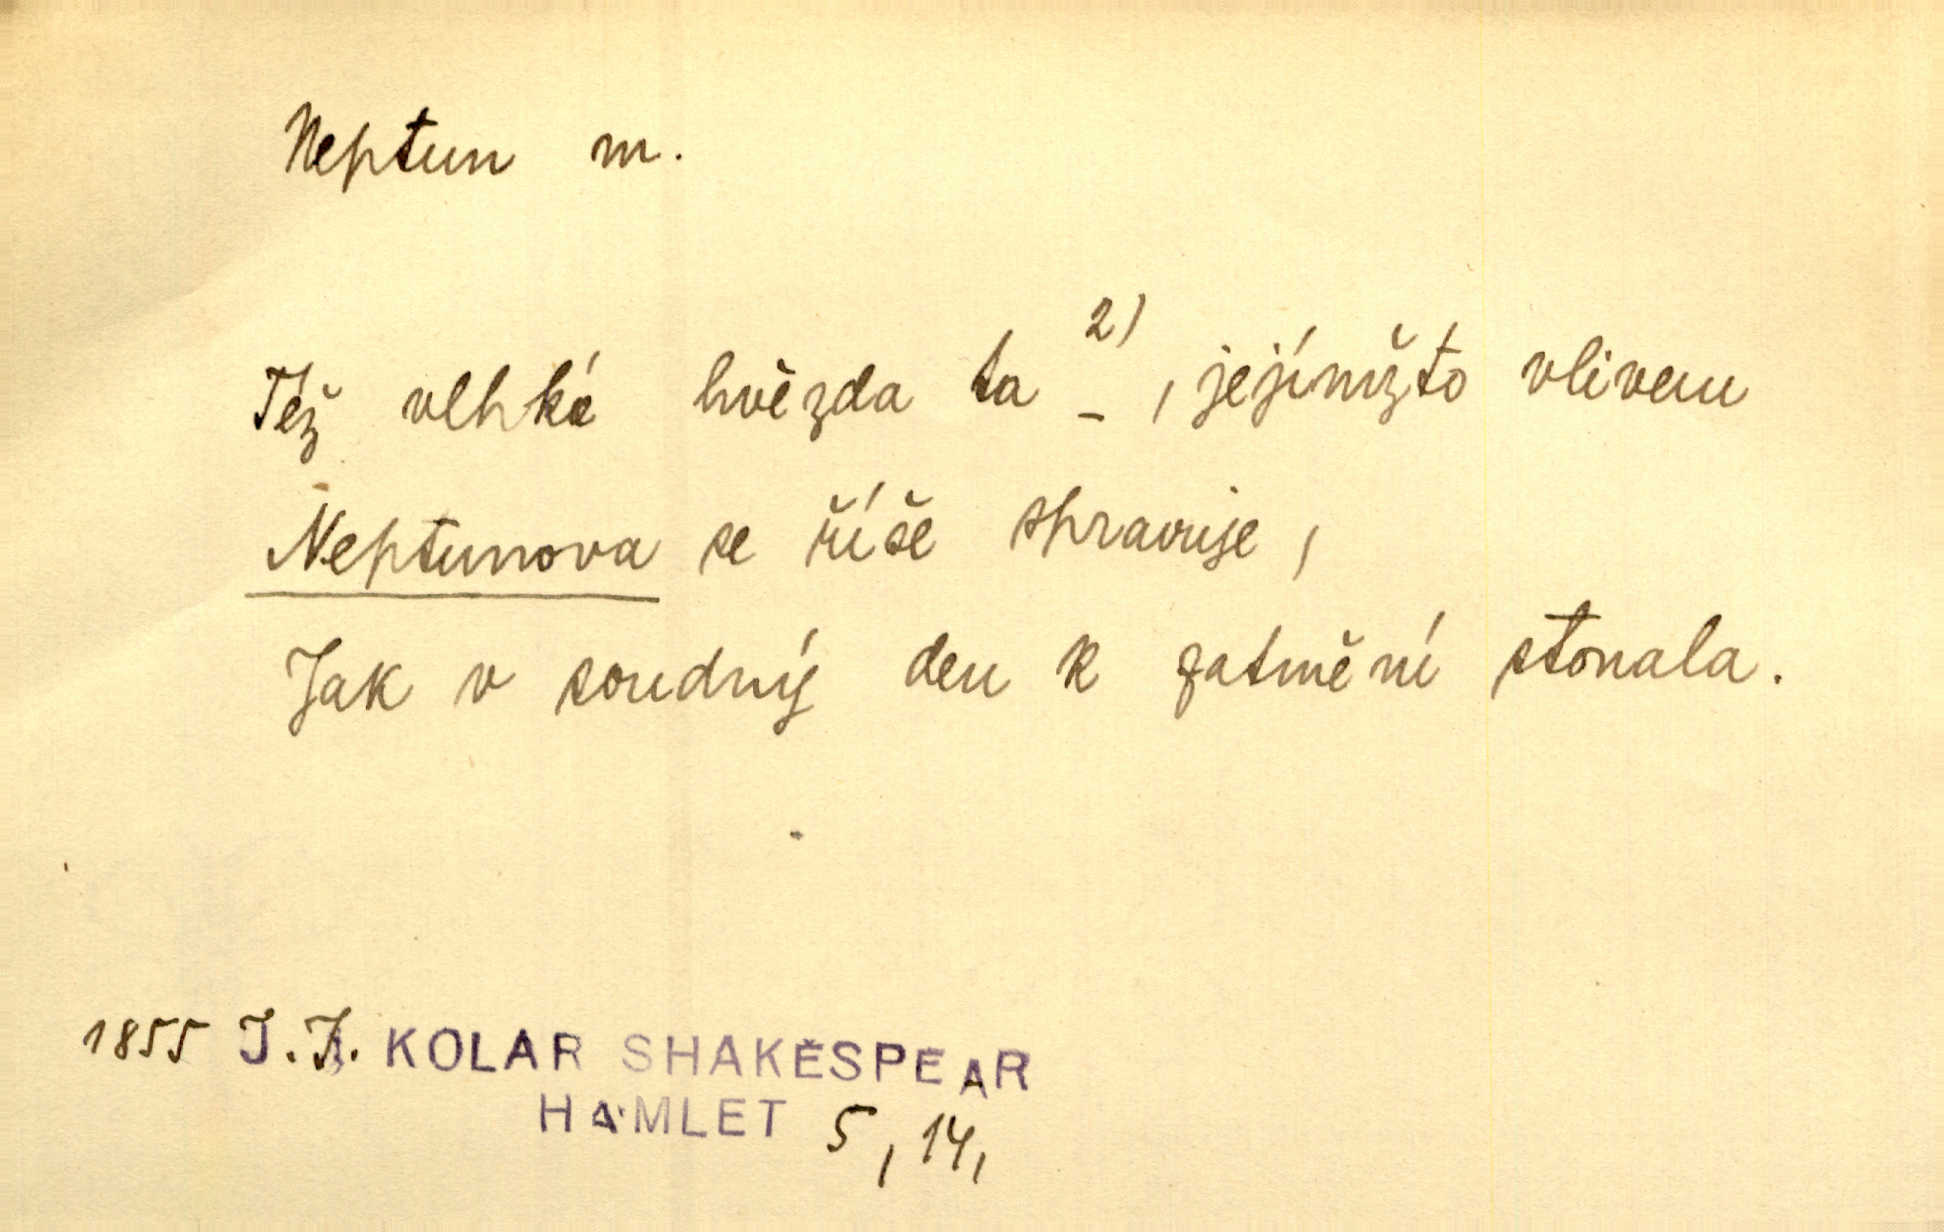 Neptun m.
Též vlhká hvězda ta _ 2), jejímžto vlivem
Neptunova se říše spravuje,
Jak v soudný den k zatmění stonala.
1855 J.J. KOLAR SHAKESPEAR
HAMLET 5, 14,